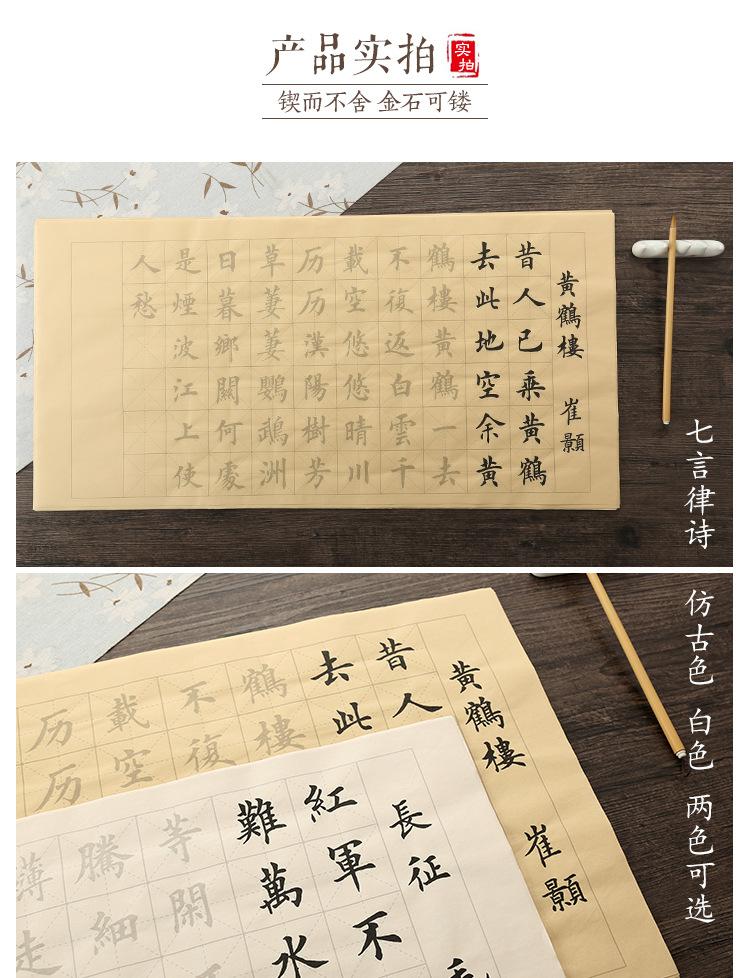 产品实拍
实拍
锲而不舍 金石可镂
黄鶴樓 崔顥
昔人已乘黄鶴
去此地空余黄
鶴樓黄鶴一去
不復返白雲千
載空悠悠晴川
历历漢陽樹芳
草萋萋鸚鵡洲
日暮鄉關何處
是煙波江上使
人愁
七言律诗
仿古色 白色 两色可选
黄鶴樓 崔顥
昔人
去此
鶴樓
不復
載空
历历
長征
紅軍不
難萬水
等閑
騰細
薄走